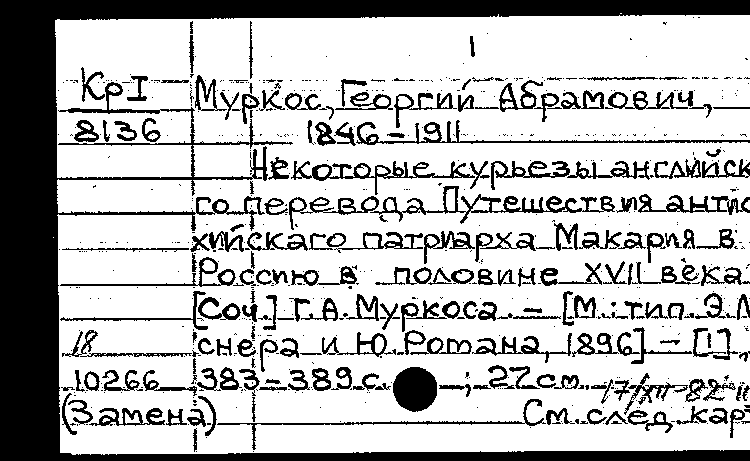 1
Кр I Муркос, Георгий Абрамович,
8136 1846-1911
Некоторые курьезы английск
го перевода Путешествия антио
хийскаго патриарха Макария в
Россию в половине XVII века
[Соч.] Г.А.Муркоса. - [М.: тип. Э.Л
18 снера и Ю.Романа, 1896] - [1],
10266 383-389 с. ; 27 см 17/XII-82
(Замена) См. след. кар